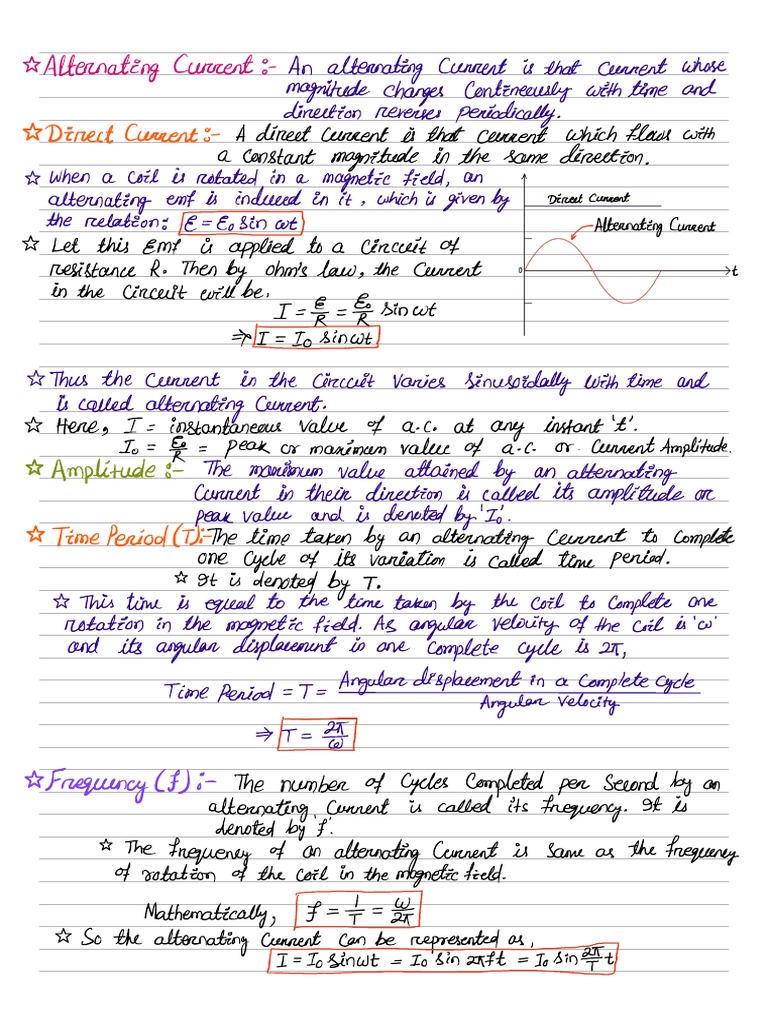 ☆ Alternating Current :- An alternating Current is that Current whose
magnitude changes Contineously with time and
direction reverses periodically.
☆ Direct Current :- A direct current is that current which flows with
a constant magnitude in the same direction.
☆ When a coil is rotated in a magnetic field, an
alternating emf is induced in it, which is given by
the relation: ε = ε₀ sin ωt
Direct Current
Alternating Current
0
t
☆ Let this Emf is applied to a Circuit of
resistance R. Then by ohm's law, the Current
in the Circuit will be,
I = ε/R = ε₀/R sin ωt
⇒ I = I₀ sin ωt
☆ Thus the Current in the Circcuit varies sinusoidally with time and
is called alternating Current.
☆ Here, I = instantaneous value of a.c. at any instant 't'.
I₀ = ε₀/R = peak or maximum value of a.c. or Current Amplitude.
☆ Amplitude :- The maximum value attained by an alternating
Current in their direction is called its amplitude or
peak value and is denoted by 'I₀'.
☆ Time Period (T):- The time taken by an alternating Current to Complete
one Cycle of its variation is Called time period.
☆ It is denoted by T.
☆ This time is equal to the time taken by the coil to Complete one
rotation in the magnetic field. As angular velocity of the coil is 'ω'
and its angular displacement in one Complete cycle is 2π,
Time Period = T = Angular displacement in a Complete Cycle / Angular Velocity
⇒ T = 2π/ω
☆ Frequency (f) :- The number of Cycles Completed per Second by an
alternating Current is called its frequency. It is
denoted by f.
☆ The frequency of an alternating Current is same as the frequency
of rotation of the Coil in the magnetic field.
Mathematically, f = 1/T = ω/2π
☆ So the alternating Current can be represented as,
I = I₀ sin ωt = I₀ sin 2πft = I₀ sin 2π/T t